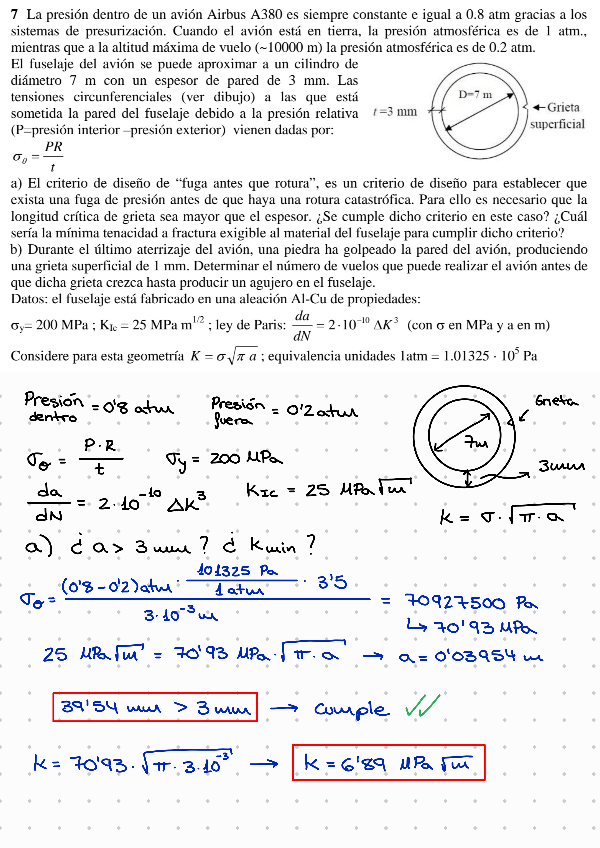 7 La presión dentro de un avión Airbus A380 es siempre constante e igual a 0.8 atm gracias a los
sistemas de presurización. Cuando el avión está en tierra, la presión atmosférica es de 1 atm.,
mientras que a la altitud máxima de vuelo (~10000 m) la presión atmosférica es de 0.2 atm.
El fuselaje del avión se puede aproximar a un cilindro de
diámetro 7 m con un espesor de pared de 3 mm. Las
tensiones circunferenciales (ver dibujo) a las que está
sometida la pared del fuselaje debido a la presión relativa
(P=presión interior –presión exterior) vienen dadas por:
σθ = PR/t
D=7 m
t=3 mm
Grieta
superficial
a) El criterio de diseño de “fuga antes que rotura”, es un criterio de diseño para establecer que
exista una fuga de presión antes de que haya una rotura catastrófica. Para ello es necesario que la
longitud crítica de grieta sea mayor que el espesor. ¿Se cumple dicho criterio en este caso? ¿Cuál
sería la mínima tenacidad a fractura exigible al material del fuselaje para cumplir dicho criterio?
b) Durante el último aterrizaje del avión, una piedra ha golpeado la pared del avión, produciendo
una grieta superficial de 1 mm. Determinar el número de vuelos que puede realizar el avión antes de
que dicha grieta crezca hasta producir un agujero en el fuselaje.
Datos: el fuselaje está fabricado en una aleación Al-Cu de propiedades:
σy= 200 MPa ; KIc = 25 MPa m^1/2 ; ley de Paris: da/dN = 2·10^-10 ΔK^3 (con σ en MPa y a en m)
Considere para esta geometría K = σ√(π a) ; equivalencia unidades 1atm = 1.01325 · 10^5 Pa
Presión dentro = 0'8 atm
Presión fuera = 0'2 atm
Grieta
7m
3mm
σθ = P·R/t
σy = 200 MPa
da/dN = 2·10^-10 ΔK^3
KIC = 25 MPa√m
K = σ·√(π·a)
a) ¿ a > 3 mm ? ¿ Kmin ?
σθ = (0'8-0'2)atm · 101325 Pa/1 atm · 3'5 / 3·10^-3 m = 70927500 Pa
↳ 70'93 MPa
25 MPa√m = 70'93 MPa·√(π·a) → a = 0'03954 m
39'54 mm > 3 mm → cumple ✓✓
K = 70'93·√(π·3·10^-3) → K = 6'89 MPa√m